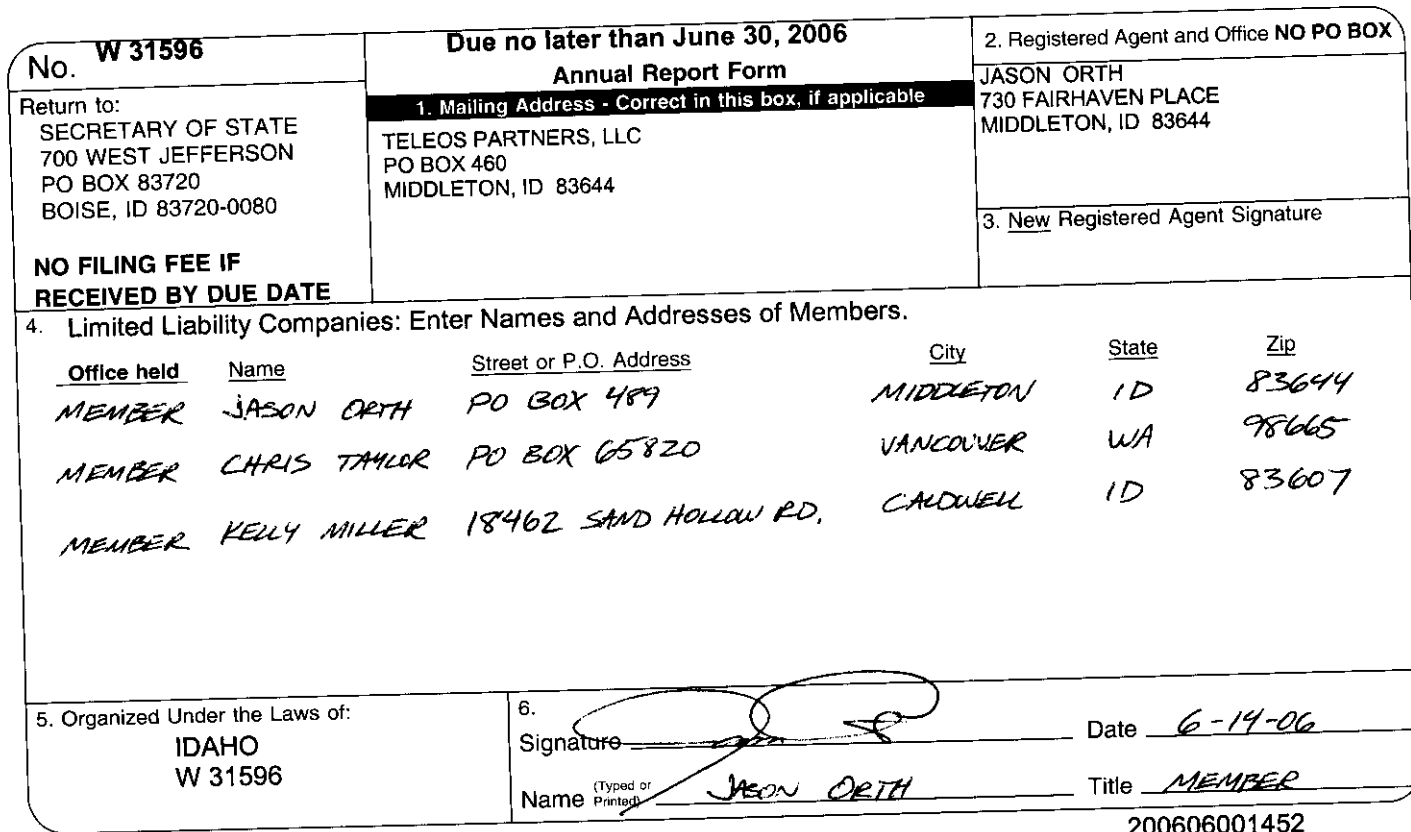 No. W 31596
Return to:
SECRETARY OF STATE
700 WEST JEFFERSON
PO BOX 83720
BOISE, ID 83720-0080
NO FILING FEE IF
RECEIVED BY DUE DATE
Due no later than June 30, 2006
Annual Report Form
1. Mailing Address - Correct in this box, if applicable
TELEOS PARTNERS, LLC
PO BOX 460
MIDDLETON, ID 83644
2. Registered Agent and Office NO PO BOX
JASON ORTH
730 FAIRHAVEN PLACE
MIDDLETON, ID 83644
3. New Registered Agent Signature
4. Limited Liability Companies: Enter Names and Addresses of Members.
Office held Name Street or P.O. Address City State Zip
MEMBER JASON ORTH PO BOX 489 MIDDLETON ID 83644
MEMBER CHRIS TAYLOR PO BOX 65820 VANCOUVER WA 98665
MEMBER KELLY MILLER 18462 SAND HOLLOW RD. CALDWELL ID 83607
5. Organized Under the Laws of:
IDAHO
W 31596
6.
Signature Date 6-14-06
Name (Typed or Printed) JASON ORTH Title MEMBER
200606001452